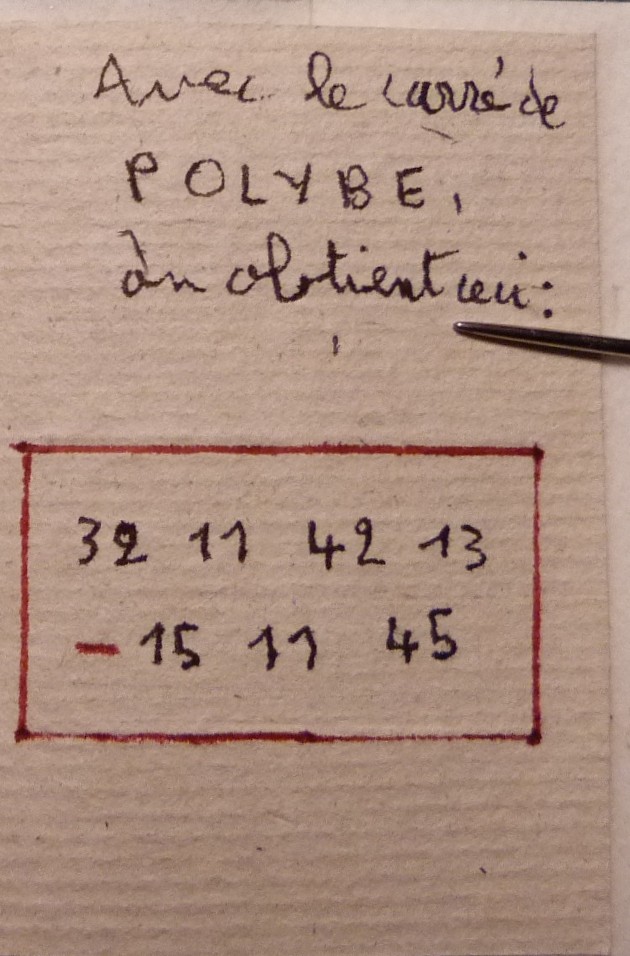 Avec le carré de
POLYBE,
on obtient ceci:
32 11 42 13
- 15 11 45